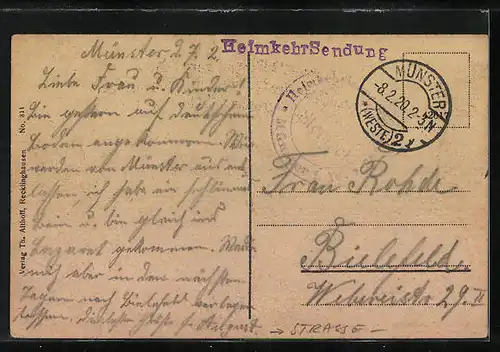 HeimkehrSendung
Münster, 2.
Liebe Frau u. Kinder!
Bin gestern auf deutschem
Boden angekommen. Wir
werden von Münster aus ent-
lassen, ich habe ein schlimmes
Bein u. bin gleich ins
Lazaret gekommen. Werde
mich aber in den nächsten
Tagen nach Bielefeld verlegen
lassen. Grüße
MÜNSTER
-8.2.20. 2-3N
*(WESTF.) 2
Frau Rohde
Bielefeld,
29.II
→ STRASSE –
Verlag Th. Althoff, Recklinghausen No. 811